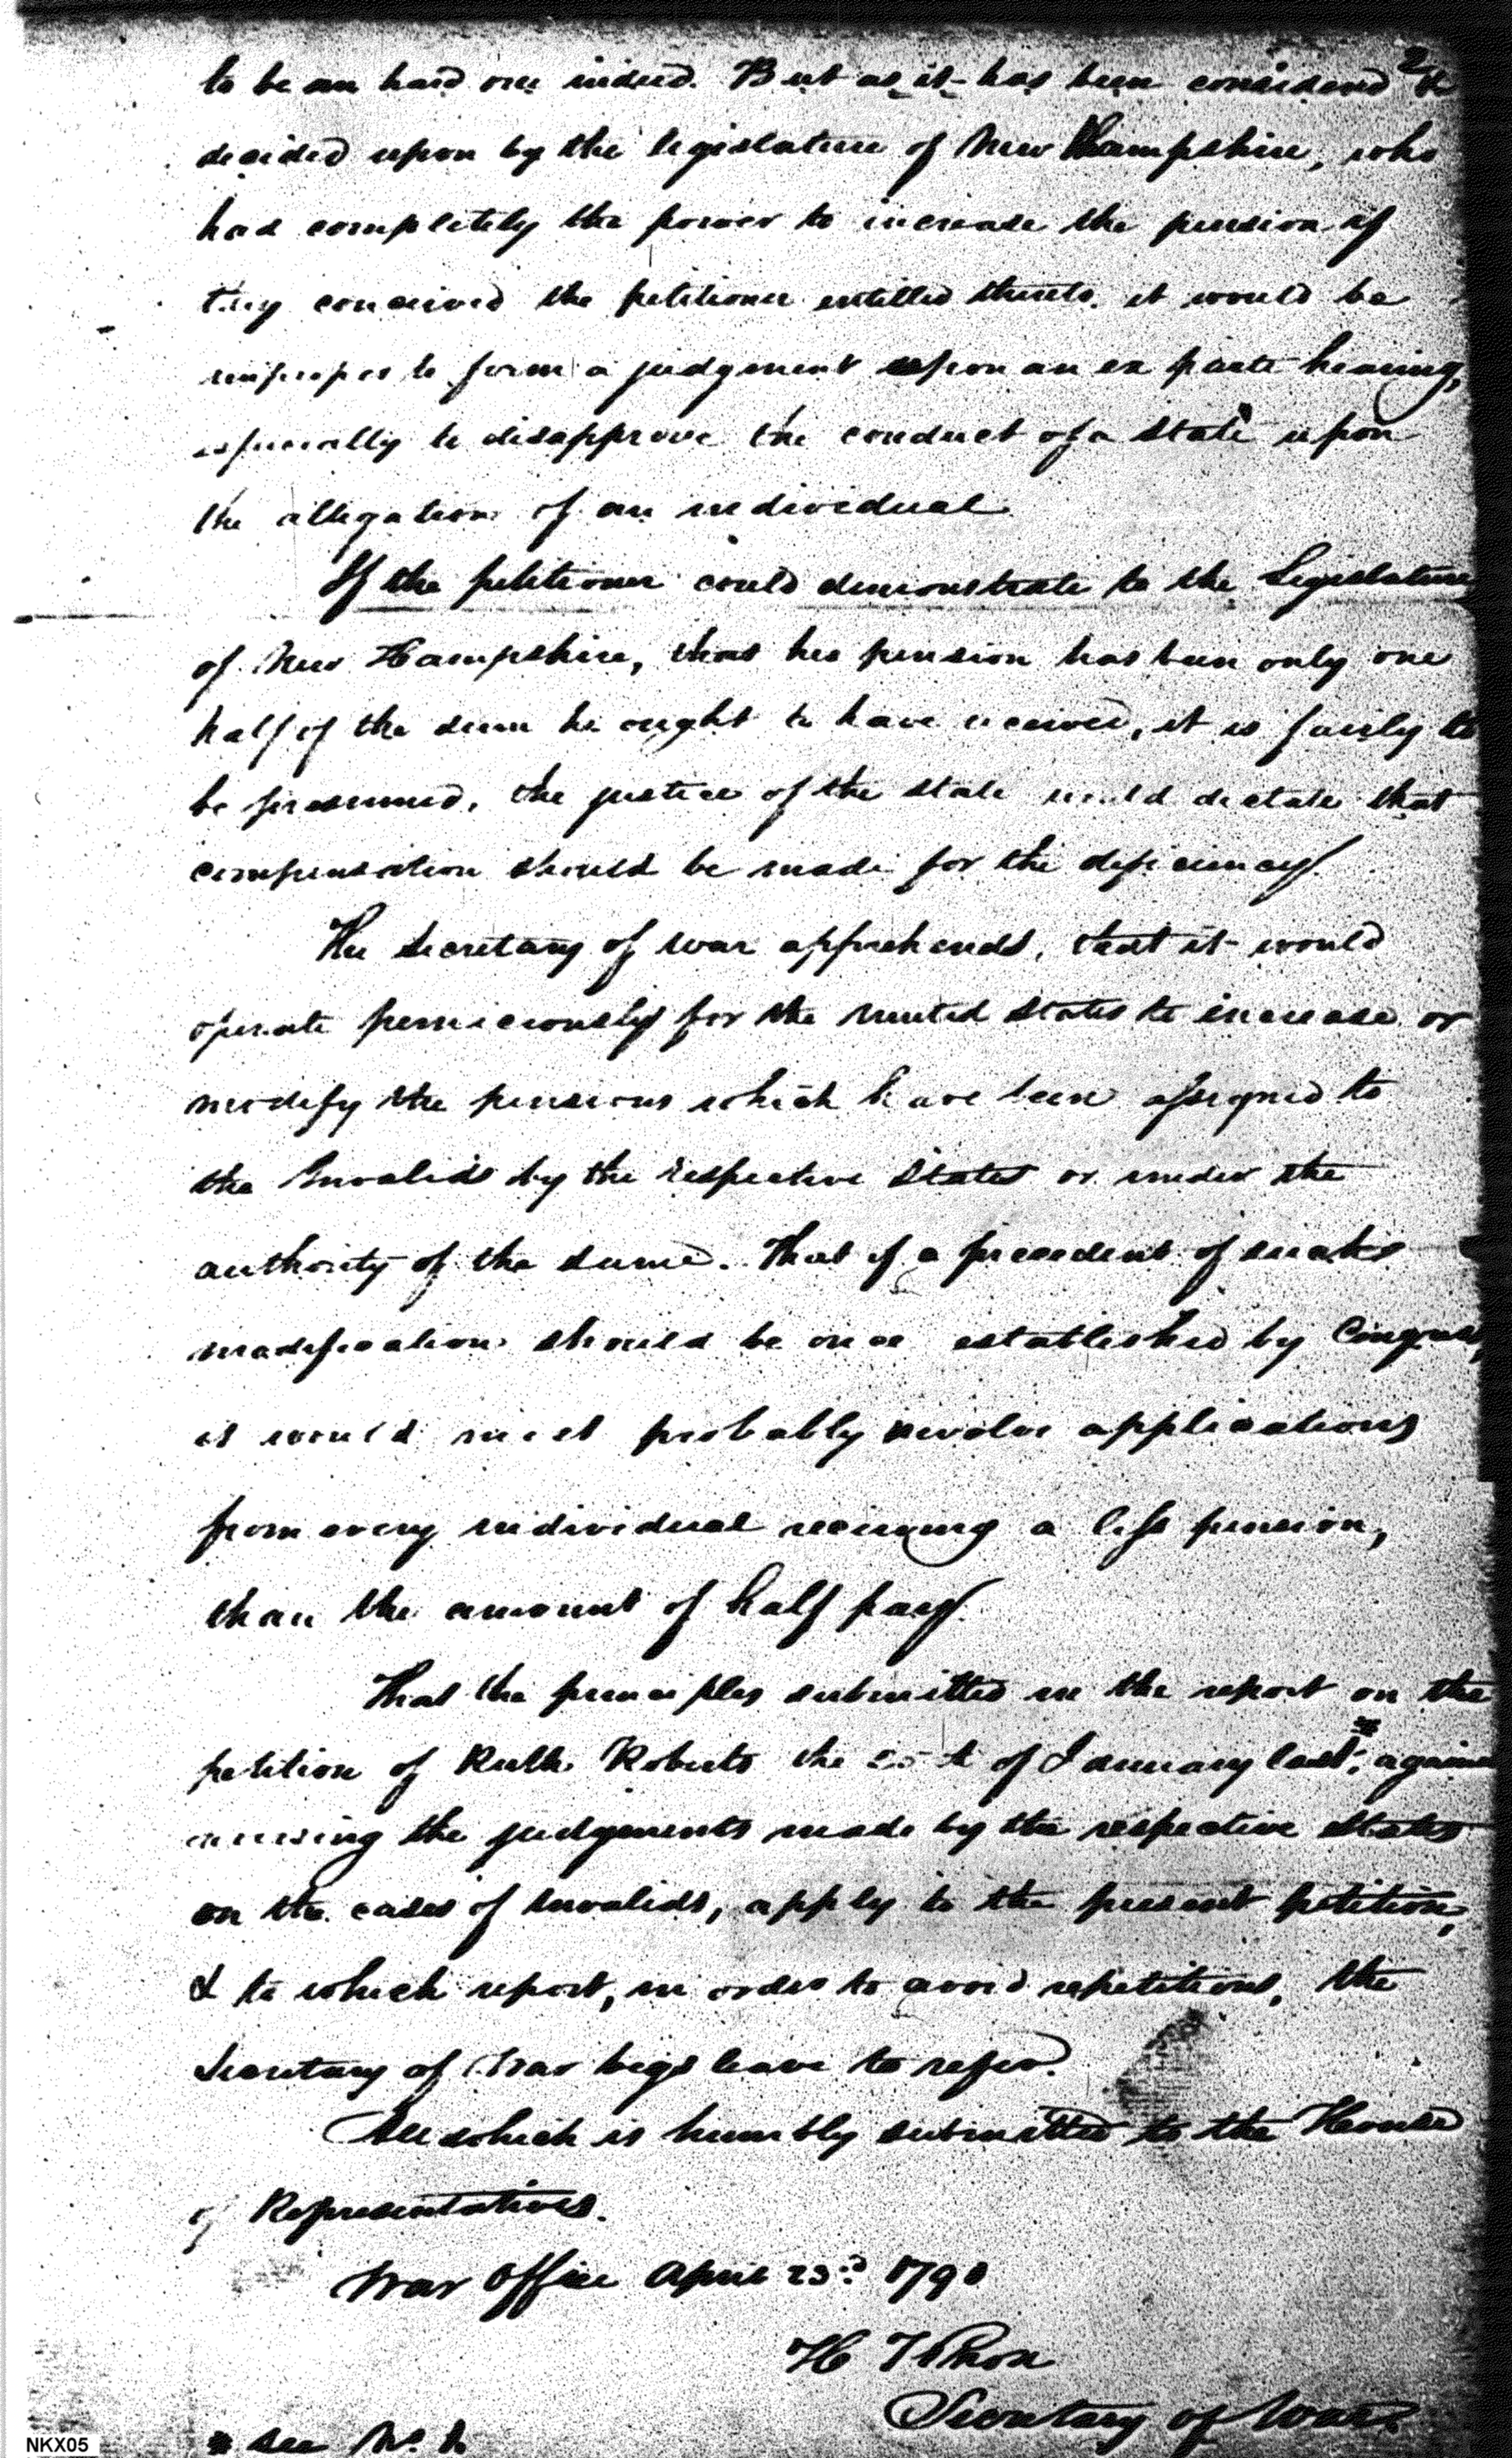 2
to be an hard one indeed. But as it has been considered &
decided upon by the legislature of New Hampshire, who
had completely the power to increase the pension if
they conceived the petitioner entitled thereto, it would be
improper to form a judgment upon an ex parte hearing,
especially to disapprove the conduct of a State upon
the allegation of an individual.
If the petitioner could demonstrate to the Legislature
of New Hampshire, that his pension has been only one
half of the sum he ought to have received, it is fairly to
be presumed, the justice of the state would dictate that
compensation should be made for the deficiency.
The Secretary of war apprehends, that it would
operate perniciously for the united States to increase or
modify the pensions which have been assigned to
the Invalids by the respective States or under the
authority of the same. That if a precedent of such
modification should be once established by Congress,
it would most probably involve applications
from every individual receiving a less pension,
than the amount of half pay.
That the principles submitted in the report on the
petition of Ruth Roberts the of January last,* against
the judgements made by the respective States
on the cases of Invalids, apply to the present petition,
& to which report, in order to avoid repetitions, the
Secretary of War begs leave to refer.
All which is humbly submitted to the House
of Representatives.
War Office April 23d 1790
H Knox
Secretary of War.
* see No. 1.
NKX05